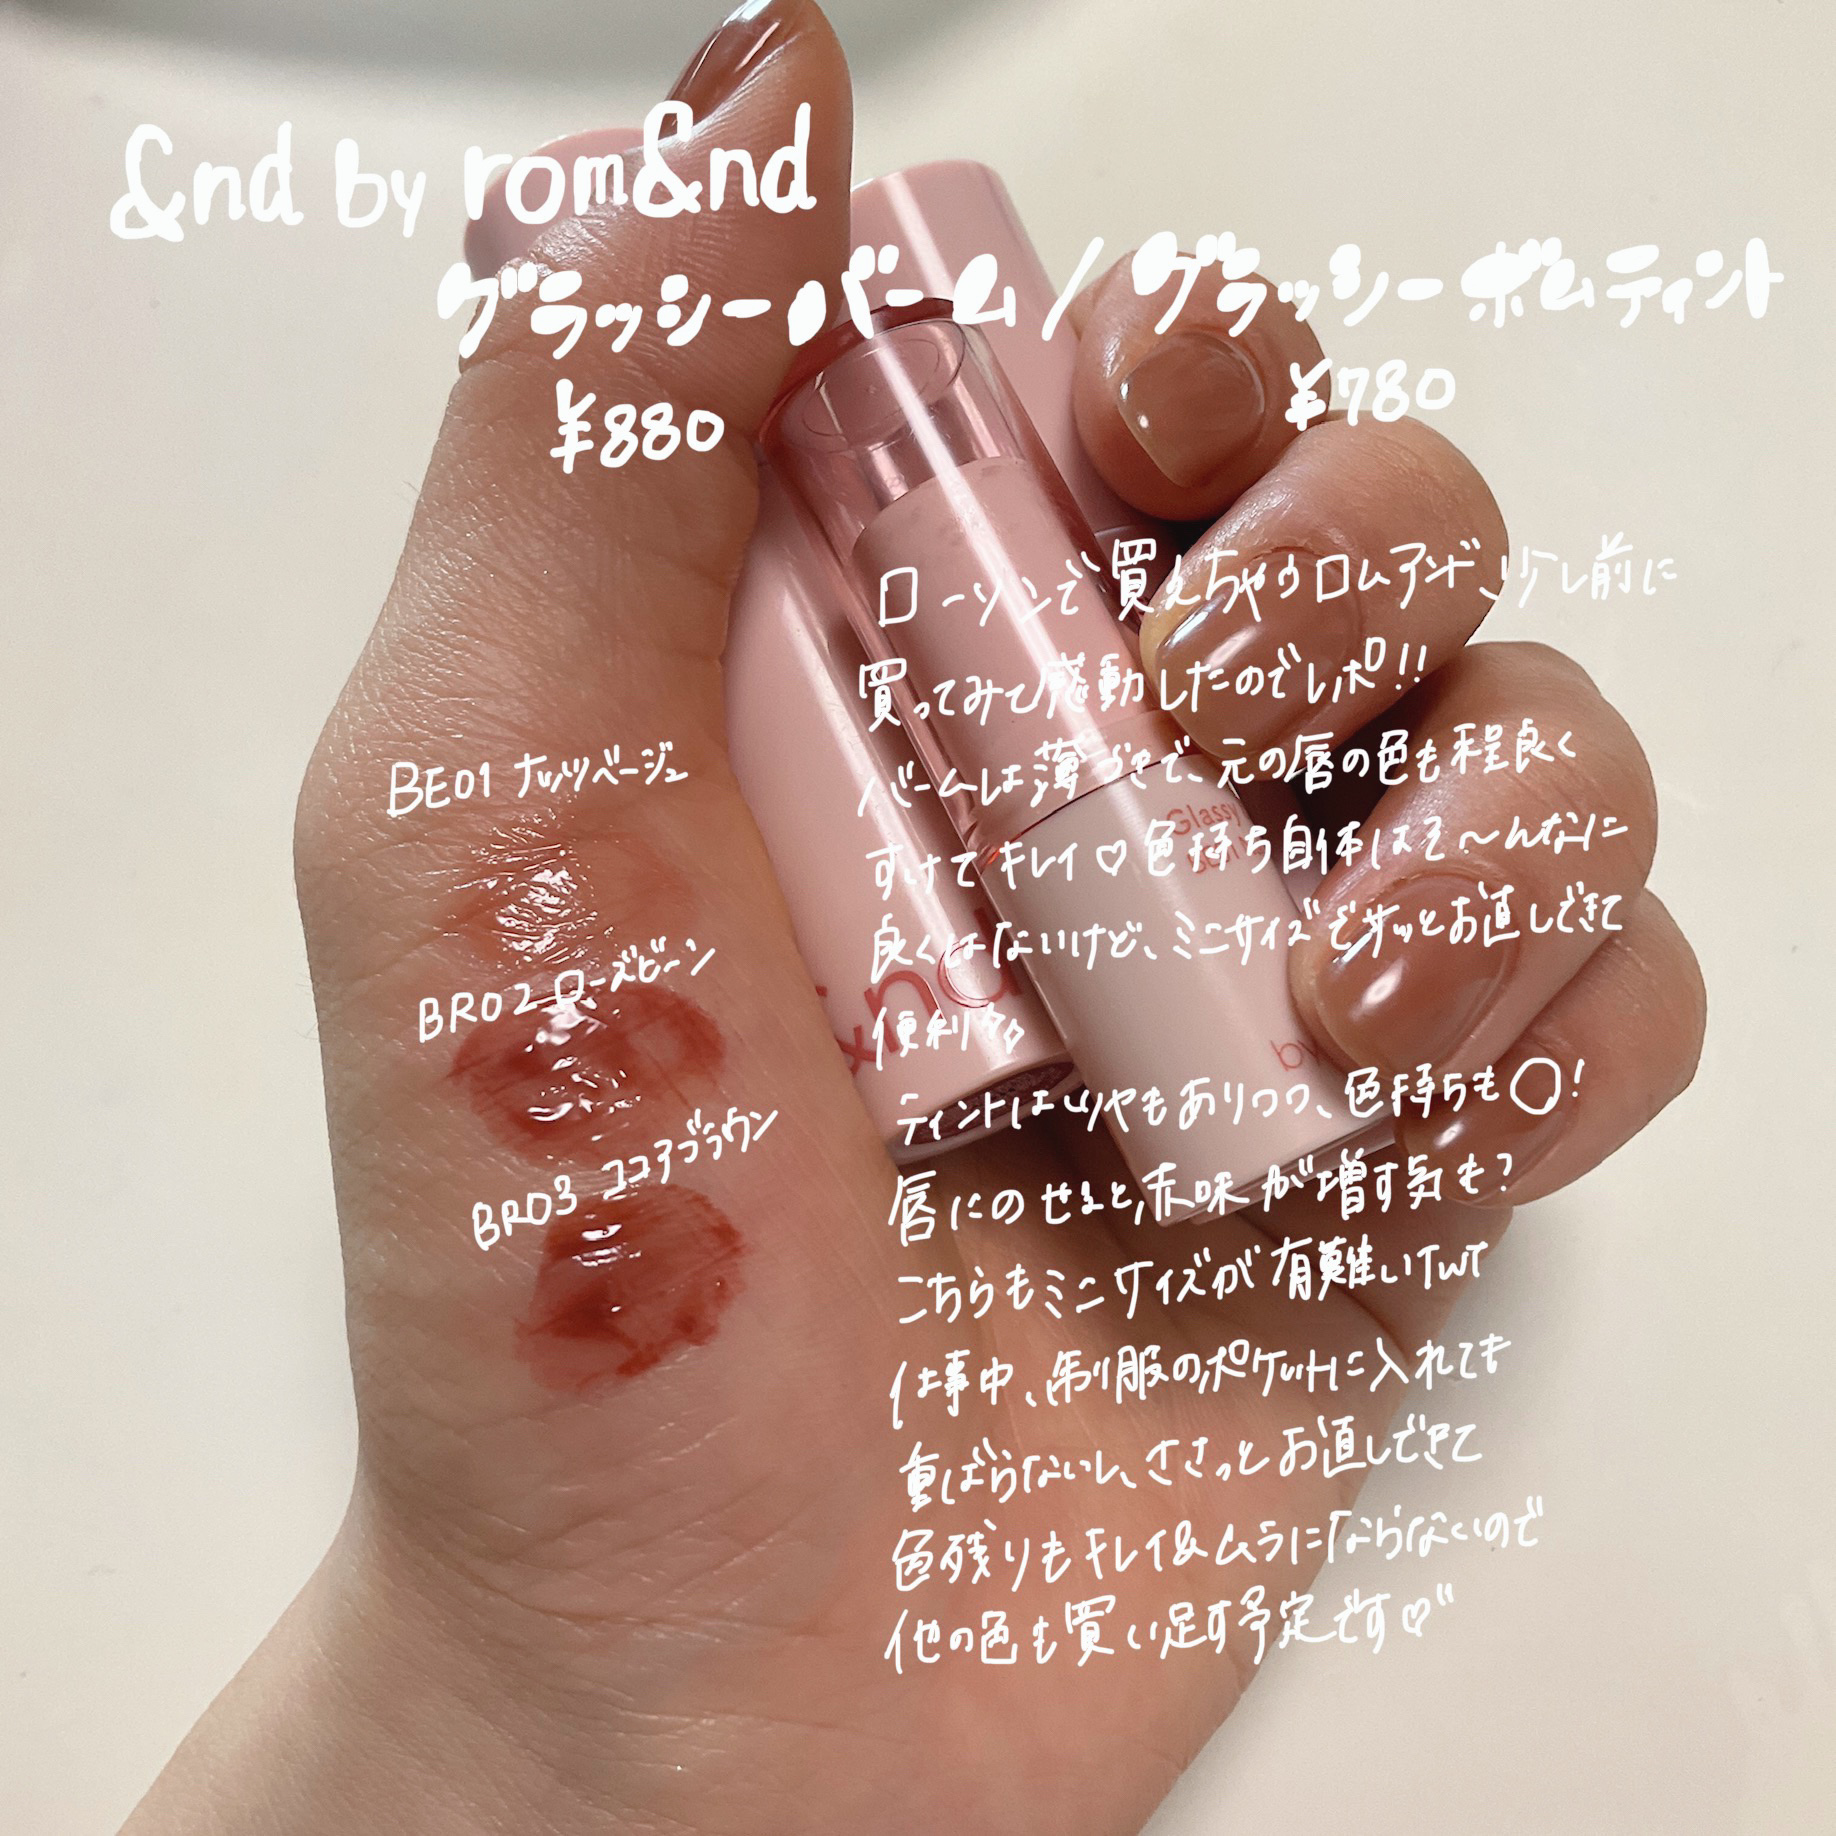 &nd by rom&nd
グラッシーバーム / グラッシーボムティント
¥880
¥780
ローソンで買えちゃうロムアンド、少し前に
買ってみて感動したのでレポ!!
バームは薄づきで、元の唇の色も程良く
すけてキレイ♡色持ち自体はそ〜んなに
良くはないけど、ミニサイズでサッとお直しできて
便利
ティントはツヤもありつつ、色持ちも〇!
唇にのせると赤味が増す気も?
こちらもミニサイズが有難いTWT
仕事中、制服のポケットに入れても
重ばらないし、ささっとお直しできて
色残りもキレイ&ムラにならないので
他の色も買い足す予定です♡"
BE01 ナッツベージュ
BR02 ローズビーン
BR03 ココアブラウン
Glassy
&nd
by